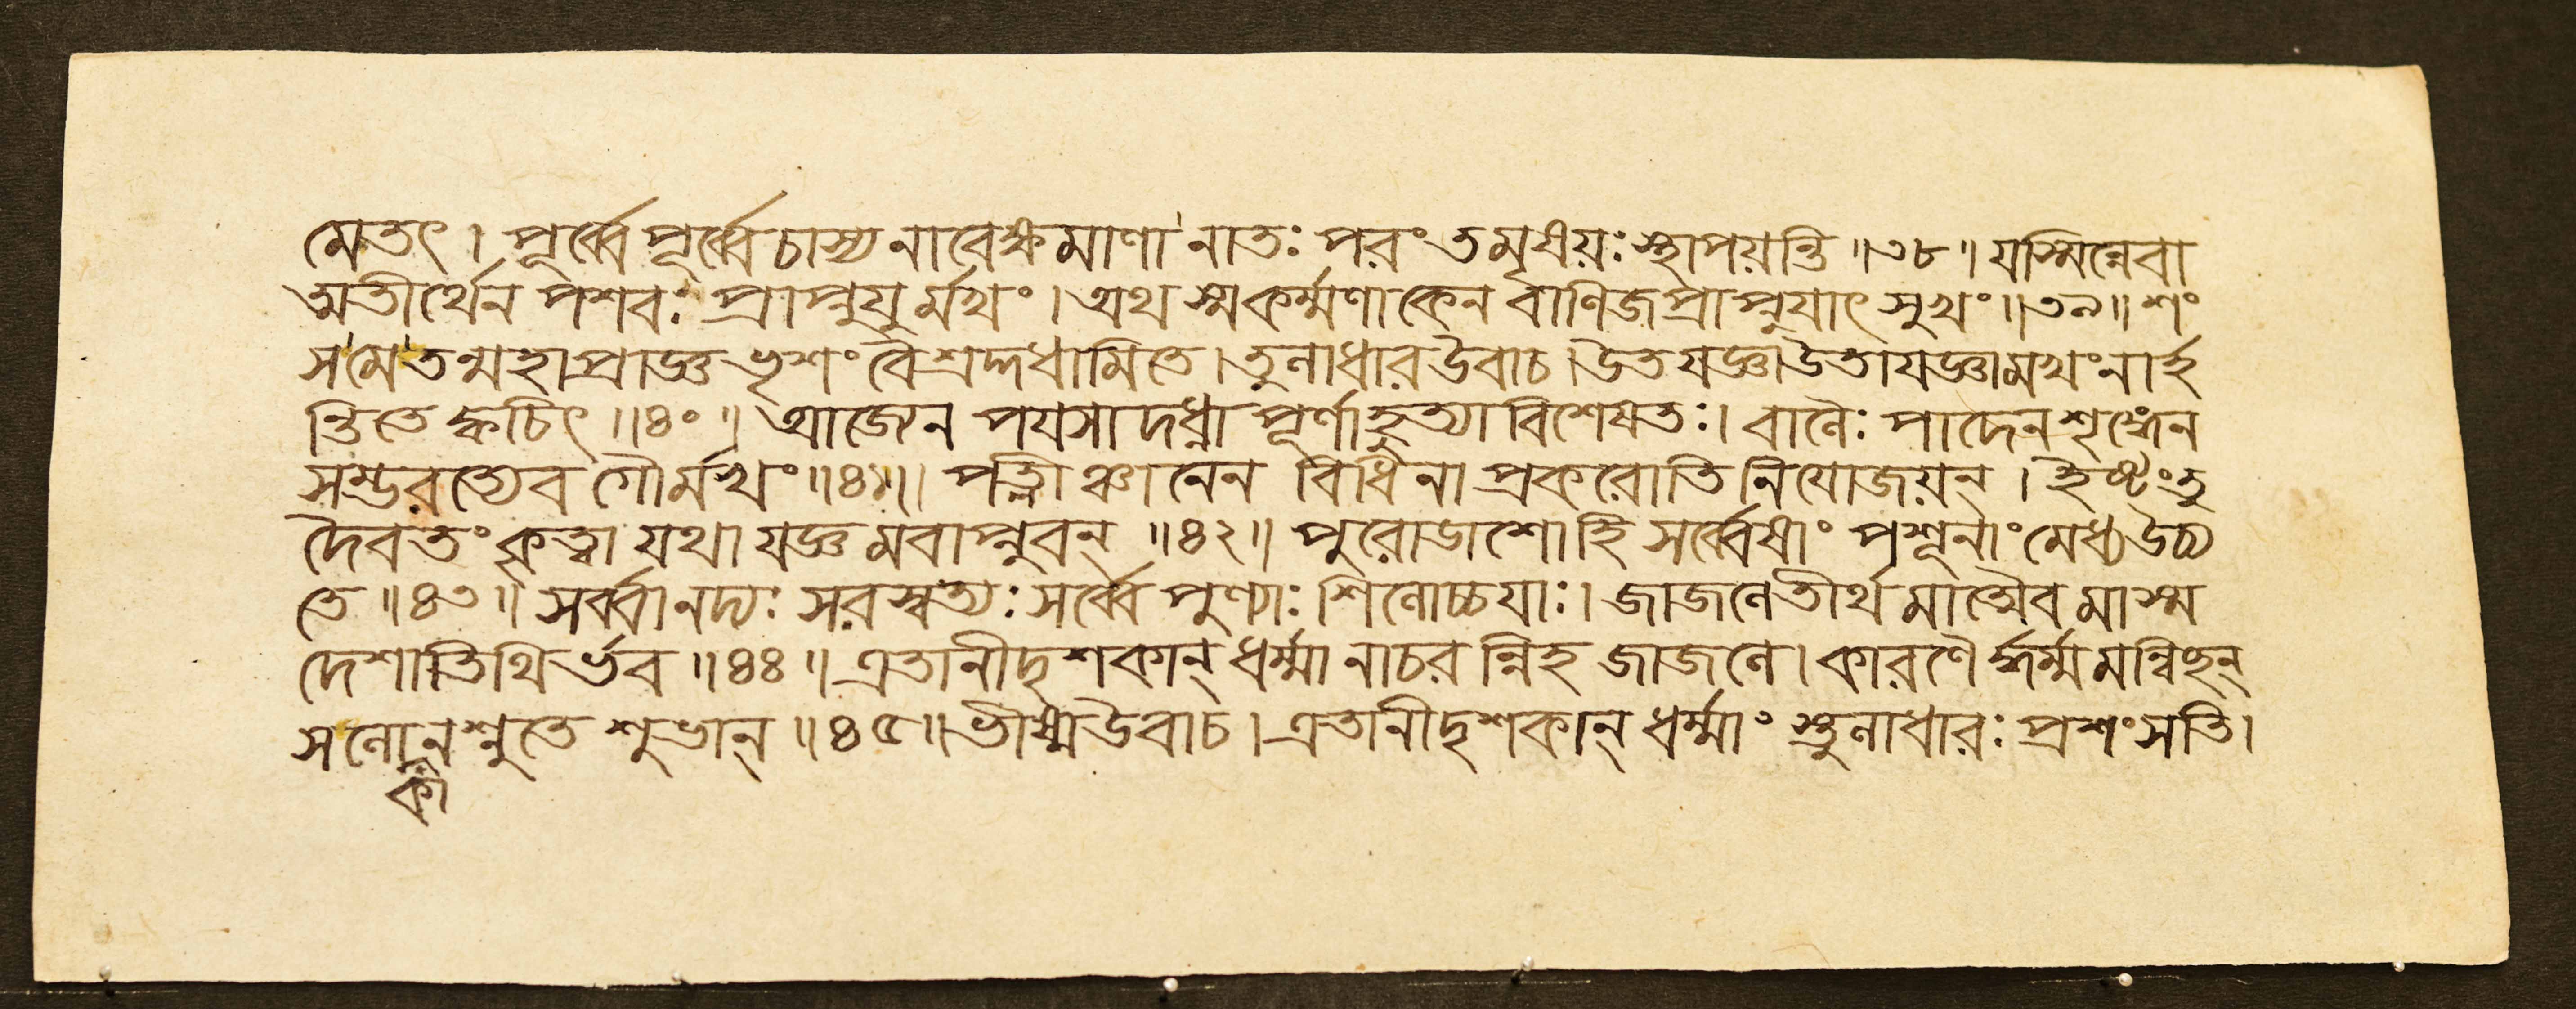 মেতৎ । পূর্ব্বে পূর্ব্বে চাস্য নাবেক্ষমাণা নাতঃ পরং তমৃষয়ঃ স্থাপয়ন্তি ॥৩৮॥ যস্মিন্নেবা
ত্মতীর্থেন পশবঃ প্রাপ্নুযুর্মখং । অথ স্মকর্ম্মণা কেন বাণিজ প্রাপ্নুযাৎ সুখং ॥৩৯॥ শং
স মে তন্মহাপ্রাজ্ঞ ভৃশং বৈ শ্রদ্দধামি তে । তুলাধার উবাচ । উত যজ্ঞা উতাযজ্ঞা মখং নার্হ
ন্তি তে ক্বচিৎ ॥৪০॥ আজ্যেন পযসা দধ্না পূর্ণাহুত্যা বিশেষতঃ । বালৈঃ পাদেন শৃঙ্গেন
সম্ভরত্যেব গৌর্মখং ॥৪১॥ পত্নীঞ্চানেন বিধিনা প্রকরোতি নিযোজয়ন্ । ইষ্টংতু
দৈবতং কৃত্বা যথা যজ্ঞমবাপ্নুবন্ ॥৪২॥ পুরোডাশো হি সর্ব্বেষাং পশূনাং মেধ্য উচ্য
তে ॥৪৩॥ সর্ব্বা নদ্যঃ সরস্বত্যঃ সর্ব্বে পুণ্যাঃ শিলোচ্চযাঃ । জাজলে তীর্থমাত্মৈব মাস্ম
দেশাতিথির্ভব ॥৪৪॥ এতানীদৃশকান্ ধর্ম্মানাচরন্নিহ জাজলে । কারণৈর্দ্ধর্ম্মমন্বিছন্
স লোকান্ নশ্নুতে শুভান্ ॥৪৫॥ ভীষ্ম উবাচ । এতানীদৃশকান্ ধর্ম্মাংস্তুলাধারঃ প্রশংসতি ।